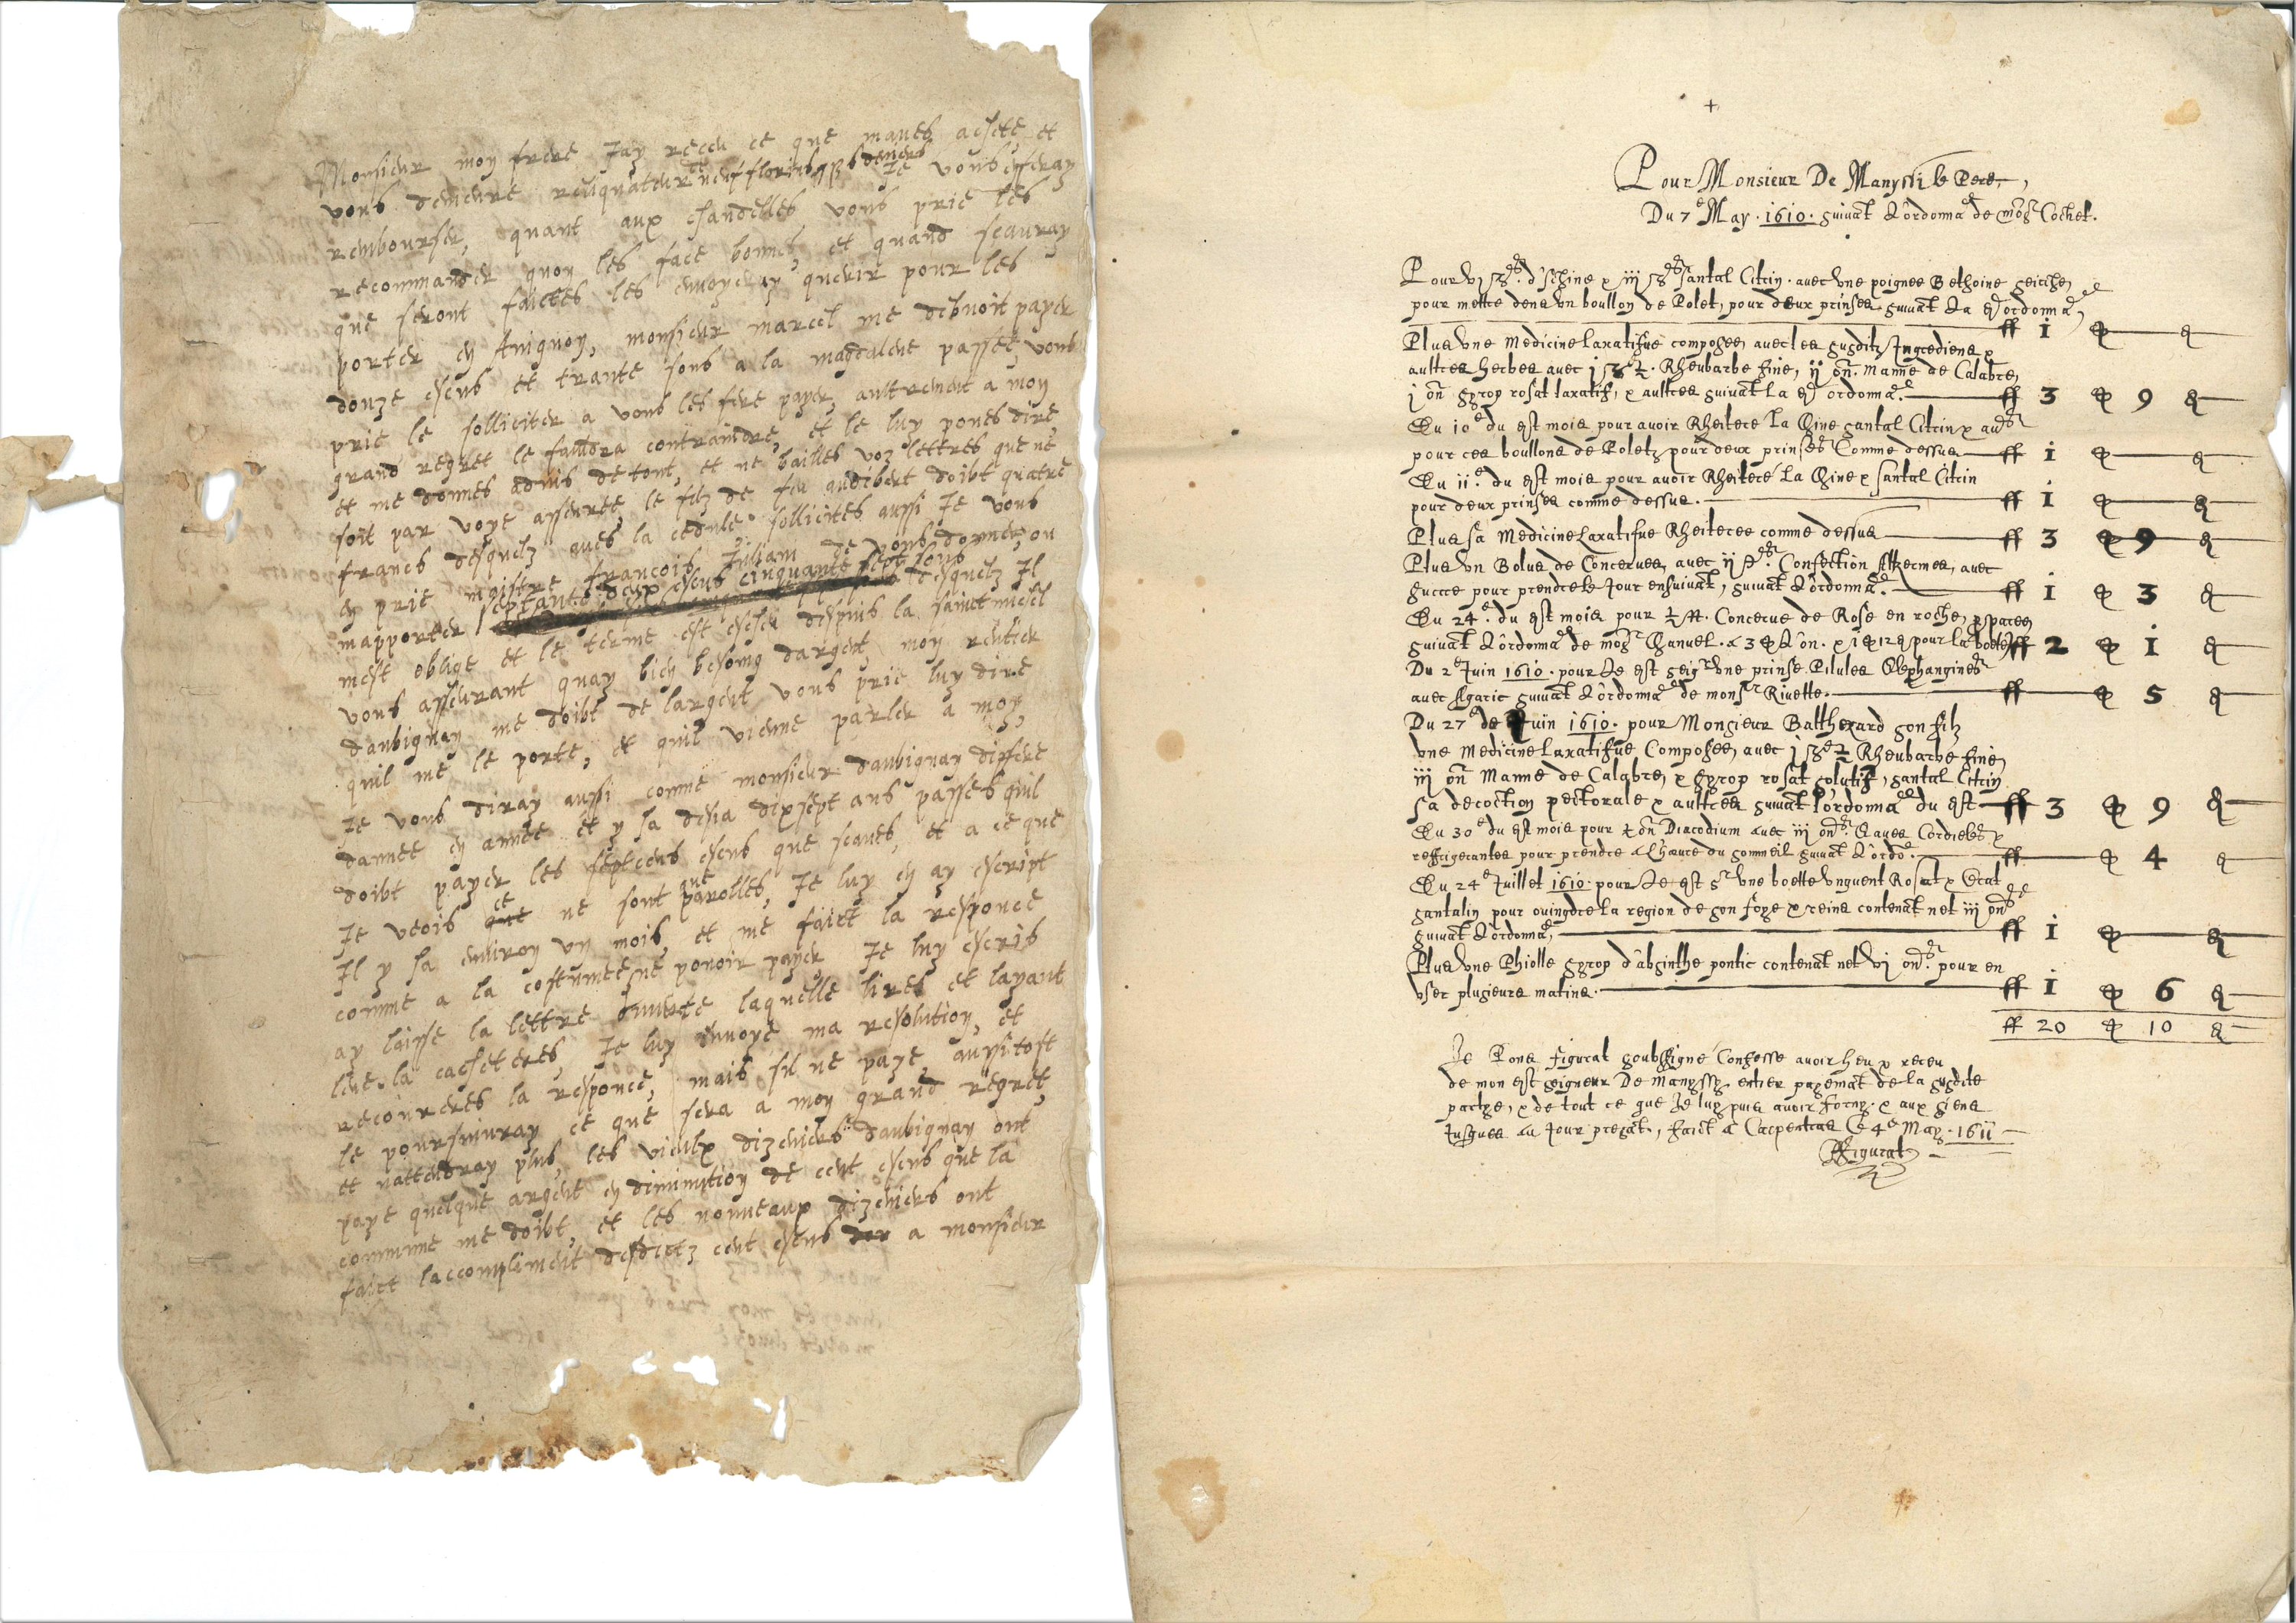 Monsieur moy frere Jay receu ce que maves achete et
vous demeure reliquateur et neuf florins 6 deniers Je vous efferay
rembourser, quant aux chandelles vous prie les
recommander quoy les face bonnes, et quand scauray
que seront faictes les envoyeray querir pour les
porter en Avignoy, monsieur marcel me debuoit payer
douze escus et trante sous a la magdalene passee, vous
prie le solliciter a vous les fere payer, autrement a moy
grand regret le faudra contraindre, et le luy poues dire,
et me donnes aduis de tout, et ne bailles voz lettres que ne
soit par voye asseuree, le filz de feu audibert doibt quatre
francs desquelz aues la cedule sollicites aussi Je vous
en prie mistre francois Juliam de vous donner, ou
mapporter septante deux escus cinquante sept sous desquelz Il
mest oblige et le terme est escheu despuis la saint michel
vous asseurant quay bien besoing dargent, moy rentier
daubignay me doibt de largent vous prie luy dire
quil me le porte, et quil vienne parler a moy,
Je vous diray aussi comme monsieur daubignay differe
dannee en annee et y ha desia dixsept ans passes quil
doibt payer les septcens escus que scaues, et a ce que
Je veois ce ne sont que parolles, Je luy en ay escript
Il y ha enuiroy vn mois, et me faict la responce
comme a la costumee ne pouoir payer Je luy escris
ay laisse la lettre ouuerte laquelle lires et layant
leue la cacheteres, Je luy enuoye ma resolution, et
recouvreres la responce, mais sil ne paye, aussitost
le poursuiuray ce que sera a moy grand regret,
et nattendray plus, les vieulx dizeniers daubignay ont
paye quelque argent en diminution de cent escus que la
commune me doibt, et les nouueaux dizeniers ont
faict laccompliment desdictz cent escus a monsieur
+
Pour Monsieur De Manyssi le Pere,
Du 7e May . 1610 . suivāt L'ordonnaē de moṣr Cochet.
Pour vj d'Eschine & iij Santal Citrin . avec vne poignee Bethoine seiche,
pour mettre dens vn boullon de Polet, pour deux prinses suivāt La ordonnaē
ff 1
Plus vne Medicine laxatifue composee, avec les susditz Ingrediens &
aultres herbes avec j ½ . Rheubarbe fine, ij on. manne de Calabre,
j on syrop rosat laxatif, & aultres suivāt La ordonnaē ff 3 9
Du 10e du mois pour avoir Rheitere La Chine santal Citrin &
pour ces boullons de Poletz pour deux prinses Comme dessus ff 1
Du 11e du mois pour avoir Rheitere La Chine & santal Citrin
pour deux prinses comme dessus . ff 1
Plus sa Medicine Laxatifue Rheiteree comme dessus ff 3 9
Plus vn Bolus de Concerves, avec ij Confection Alkermes, avec
succre pour prendre le Jour ensuivāt, suivāt L'ordonnaē. ff 1 3
Du 24e du mois pour ½ Concerve de Rose en roche,
suivāt L'ordonnaē de moṣr Chanuel . a 3 L'on . & 1 12 pour La boete ff 2 1
Du 2e Juin 1610 . pour Le vne prinse Pilules Elephangines
avec Agaric suivāt L'ordonnaē de monsr Rivette . ff 5
Du 27e de Juin 1610 . pour Monsieur Balthezard son filz
vne Medicine laxatifue Composee, avec j ½ Rheubarbe fine,
iij on Manne de Calabre, & syrop rosat solutif, santal Citrin,
Sa decoction pectorale & aultres suivāt l'ordonnaē du ff 3 9
Du 30e du mois pour on Diacodium avec iij on Eaues Cordieles &
reffrigerantes pour prendre a L'heure du sommeil suivāt L'ordoē ff 4
Du 24e Juillet 1610 . pour Le Sr vne boette vnguent Rosat & Cerat
santalin pour ouingdre La region de son foye & reins contenāt net iij on
suivāt L'ordonnaē, ff 1
Plus vne Phiolle syrop d'absinthe pontic contenāt net vj on . pour en
vser plusieurs matins . ff 1 6
ff 20 10
Je Pons Figurat soubsigné Confesse avoir heu & receu
de mon seigneur De Manyssy entier payemāt de la susdite
partye, & de tout ce que Je luy puis avoir forny . & aux siens
Jusques au Jour presāt, faict a Carpentras Ce 4e May . 1611
Figurat